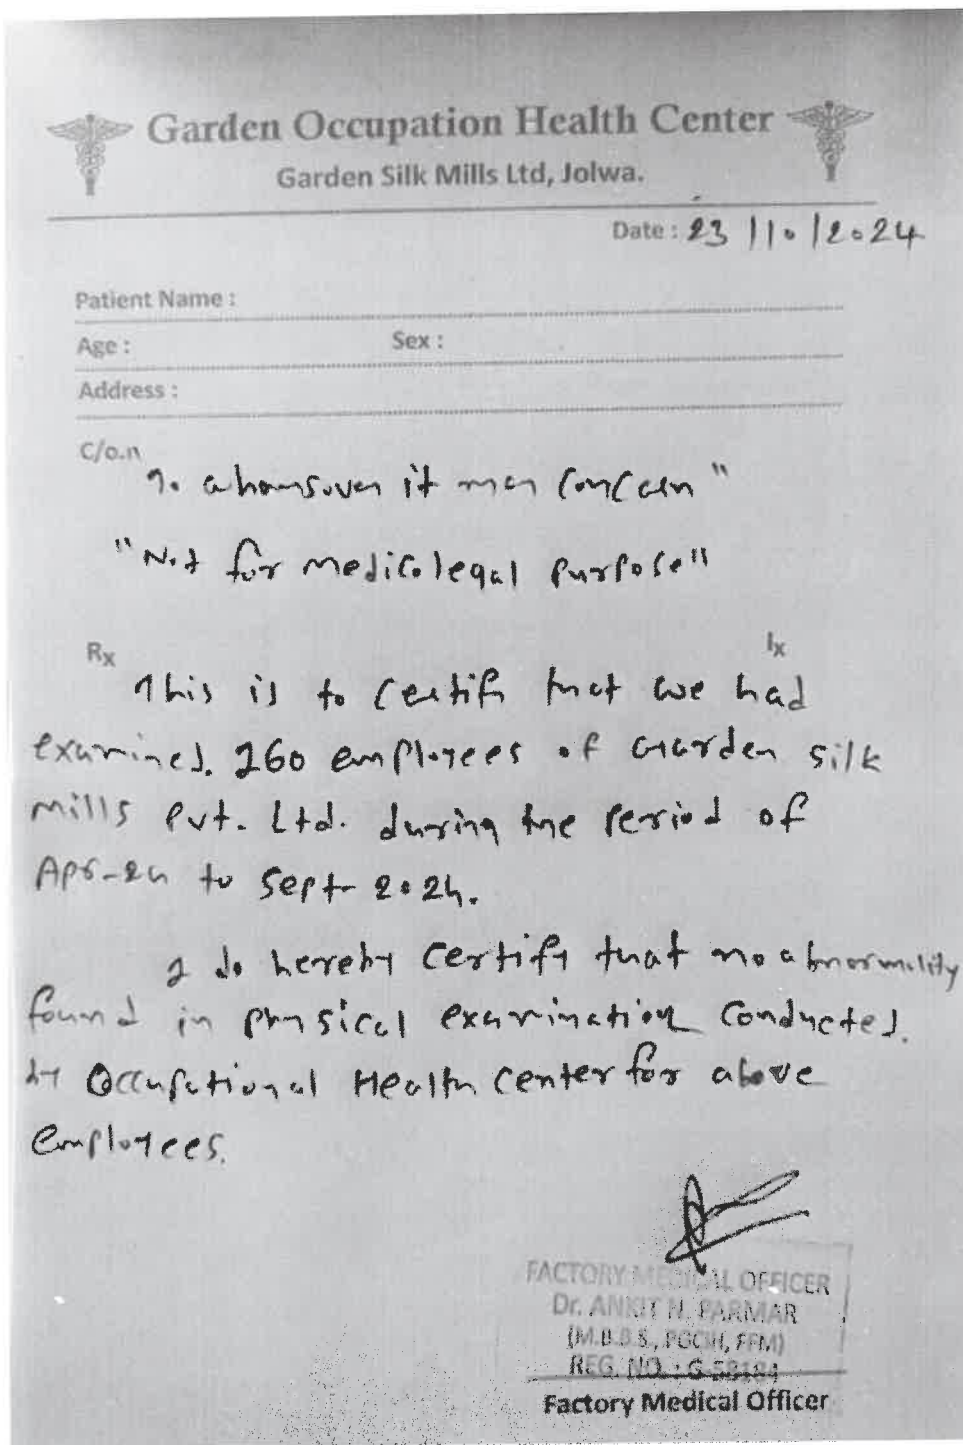 Garden Occupation Health Center
Garden Silk Mills Ltd, Jolwa.
Date : 23/10/2024
Patient Name :
Age : Sex :
Address :
C/o.n
To whomsoever it may concern"
"Not for medicolegal purpose"
Rx Ix
This is to certify that we had
examined. 260 employees of Garden silk
mills Pvt. Ltd. during the period of
Apr-24 to Sept-2024.
I do hereby certify that no abnormality
found in physical examination conducted.
by Occupational Health center for above
employees.
FACTORY MEDICAL OFFICER
Dr. ANKIT N. PARMAR
(M.B.B.S., PGCIH, FFM)
REG. NO. : G-58184
Factory Medical Officer